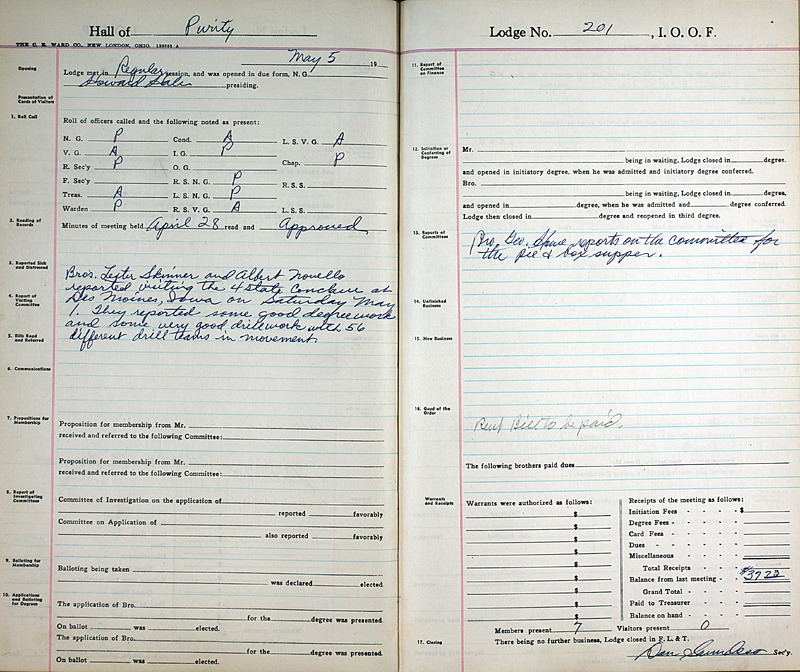 Hall of Purity
THE C. E. WARD CO., NEW LONDON, OHIO.
May 5 19
Opening
Lodge met in Regular session, and was opened in due form, N. G.
Howard presiding.
Presentation of Cards of Visitors
1. Roll Call
Roll of officers called and the following noted as present:
N. G. P Cond. A L. S. V. G. A
V. G. A I. G. P
R. Sec'y P O. G. Chap. P
F. Sec'y R. S. N. G. P R. S. S.
Treas. A L. S. N. G. P
Warden P R. S. V. G. A L. S. S.
2. Reading of Records
Minutes of meeting held April 28 read and Approved
3. Reported Sick and Distressed
Bros. Lester Skinner and Albert Novello
reported visiting the 4 state Conclave at
4. Report of Visiting Committee
Des Moines, Iowa on Saturday May
1. They reported some good degree work
and some very good drillwork with 56
5. Bills Read and Referred
different drill teams in movement.
6. Communications
7. Propositions for Membership
Proposition for membership from Mr.
received and referred to the following Committee:
Proposition for membership from Mr.
received and referred to the following Committee:
8. Report of Investigating Committees
Committee of Investigation on the application of
reported favorably
Committee on Application of
also reported favorably
9. Balloting for Membership
Balloting being taken
was declared elected.
10. Applications and Balloting for Degrees
The application of Bro.
for the degree was presented.
On ballot was elected.
The application of Bro.
for the degree was presented.
On ballot was elected.
Lodge No. 201, I. O. O. F.
11. Report of Committee on Finance
12. Initiation or Conferring of Degrees
Mr.
being in waiting, Lodge closed in degree.
and opened in initiatory degree, when he was admitted and initiatory degree conferred.
Bro.
being in waiting, Lodge closed in degree,
and opened in degree, when he was admitted and degree conferred.
Lodge then closed in degree and reopened in third degree.
13. Reports of Committees
Bro. Geo. reports on the committee for
the pie & box supper.
14. Unfinished Business
15. New Business
16. Good of the Order
Rent Bill to be paid.
The following brothers paid dues
Warrants and Receipts
Warrants were authorized as follows:
$
$
$
$
$
$
$
$
$
Receipts of the meeting as follows:
Initiation Fees - - - - $
Degree Fees - - - - -
Card Fees - - - - -
Dues - - - - - -
Miscellaneous - - - -
Total Receipts
Balance from last meeting - $3722
Grand Total - - -
Paid to Treasurer - - -
Balance on hand - - -
Members present 7 Visitors present 0
17. Closing
There being no further business, Lodge closed in F. L. & T.
Sec'y.